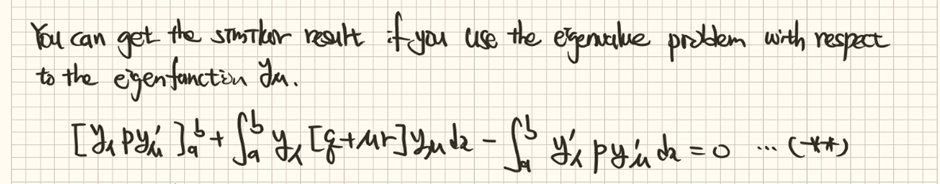 You can get the similar result if you use the eigenvalue problem with respect
to the eigenfunction y_μ.
[y_λ p y'_μ]_a^b + ∫_a^b y_λ [q + μr] y_μ dx - ∫_a^b y'_λ p y'_μ dx = 0 ... (**)